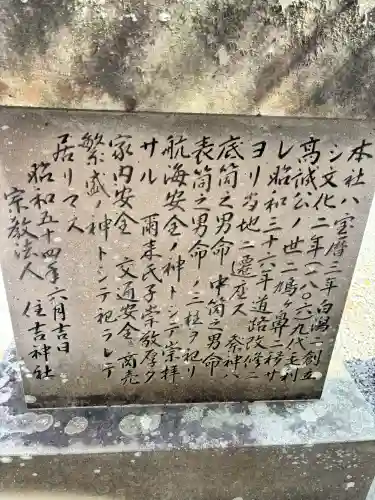 本社ハ宝暦三年白潟ニ創立
シ文化二年(一八〇六)九代毛利
高誠公ノ世ニ鳩ヶ鼻ニ移サ
レ昭和三十六年道路改修ニ
ヨリ当地ニ遷座ス 祭神ハ
底筒之男命 中筒之男命
表筒之男命ノ三柱ヲ祀リ
航海安全ノ神トシテ崇拝
サル 爾来氏子崇敬厚ク
家内安全 交通安全 商売
繁盛ノ神トシテ祀ラレテ
居リマス
昭和五十四年六月吉日
宗教法人 住吉神社